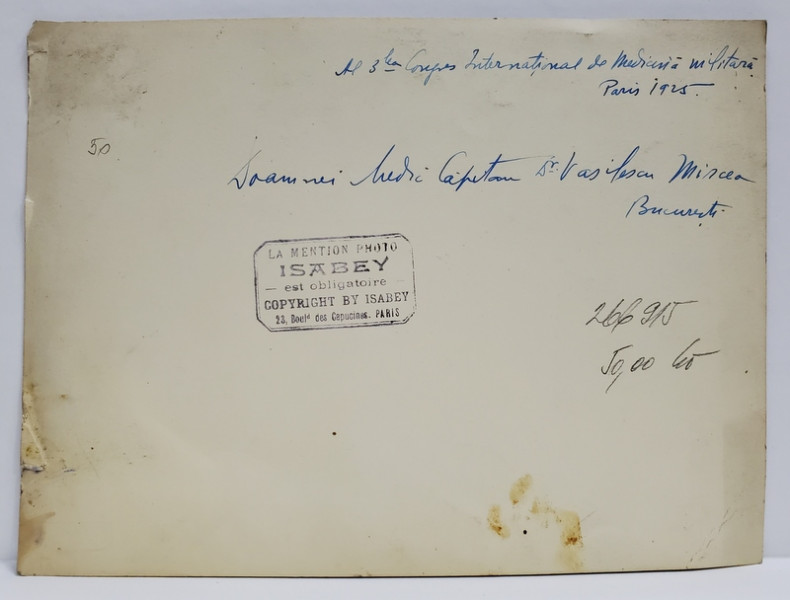 Al 3lea Congres International de Medicină militară
Paris 1925.
50
Doamnei Medic Căpitan Dr. Vasilescu Mircea
București
LA MENTION PHOTO
ISABEY
— est obligatoire —
COPYRIGHT BY ISABEY
23, Boulᵈ des Capucines. PARIS
266915
50,00